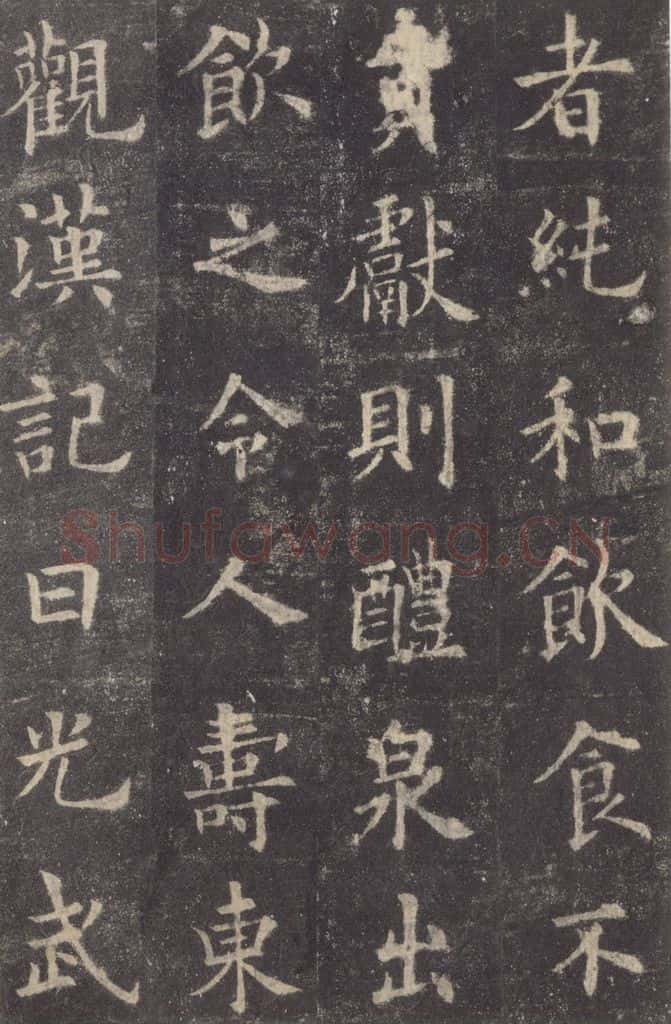 者純和飲食不
貢獻則醴泉出
飲之令人壽東
觀漢記曰光武
Shufawang.CN